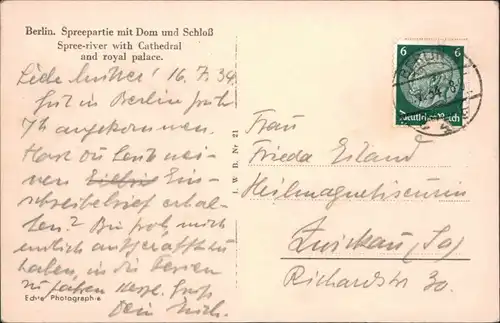 Berlin. Spreepartie mit Dom und Schloß
Spree-river with Cathedral
and royal palace.
Liebe Mutter! 16.7.34
Gut in Berlin früh
7h angekommen.
Hast du heut mei-
nen Ein-
schreibebrief erhal-
ten? Bin froh, mich
endlich aufgerafft zu
haben, in die Ferien
zu fahren. Herzl. Gruß
Dein Erich.
Echte Photographie
I. W. B. Nr 21
6 6
Deutsches Reich
BERLIN
Frau
Frieda
Heilmagnetiseurin
Zwickau (Sa)
Richardstr 30.